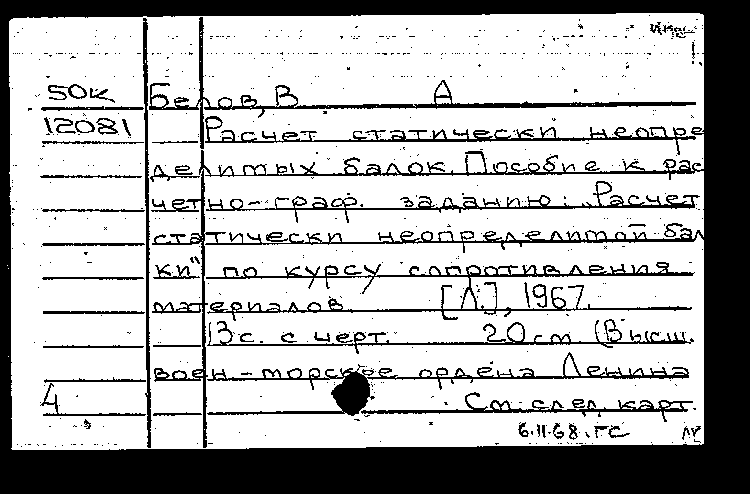 50к Белов, В А
12081 Расчет статически неопре
делимых балок. Пособие к рас
четно-граф. заданию: „Расчет
статически неопределимой бал
ки" по курсу сопротивления
материалов. [Л.], 1967.
13 с. с черт. 20 см (Высш.
воен-морское ордена Ленина
4 См. след. карт.
6.11.68. ГС